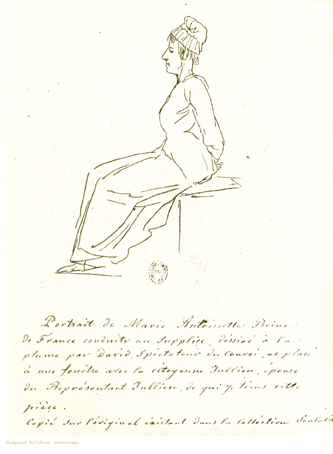 Portrait de Marie Antoinette Reine
de France conduite au Supplice, dessiné à la
plume par David, Spectateur du Convoi, et placé
à une fenêtre avec la citoyenne Jullien, épouse
du Représentant Jullien, de qui je tiens cette
pièce.
Copié sur l'original existant dans la Collection Soulavie
Bridgeman Art Library